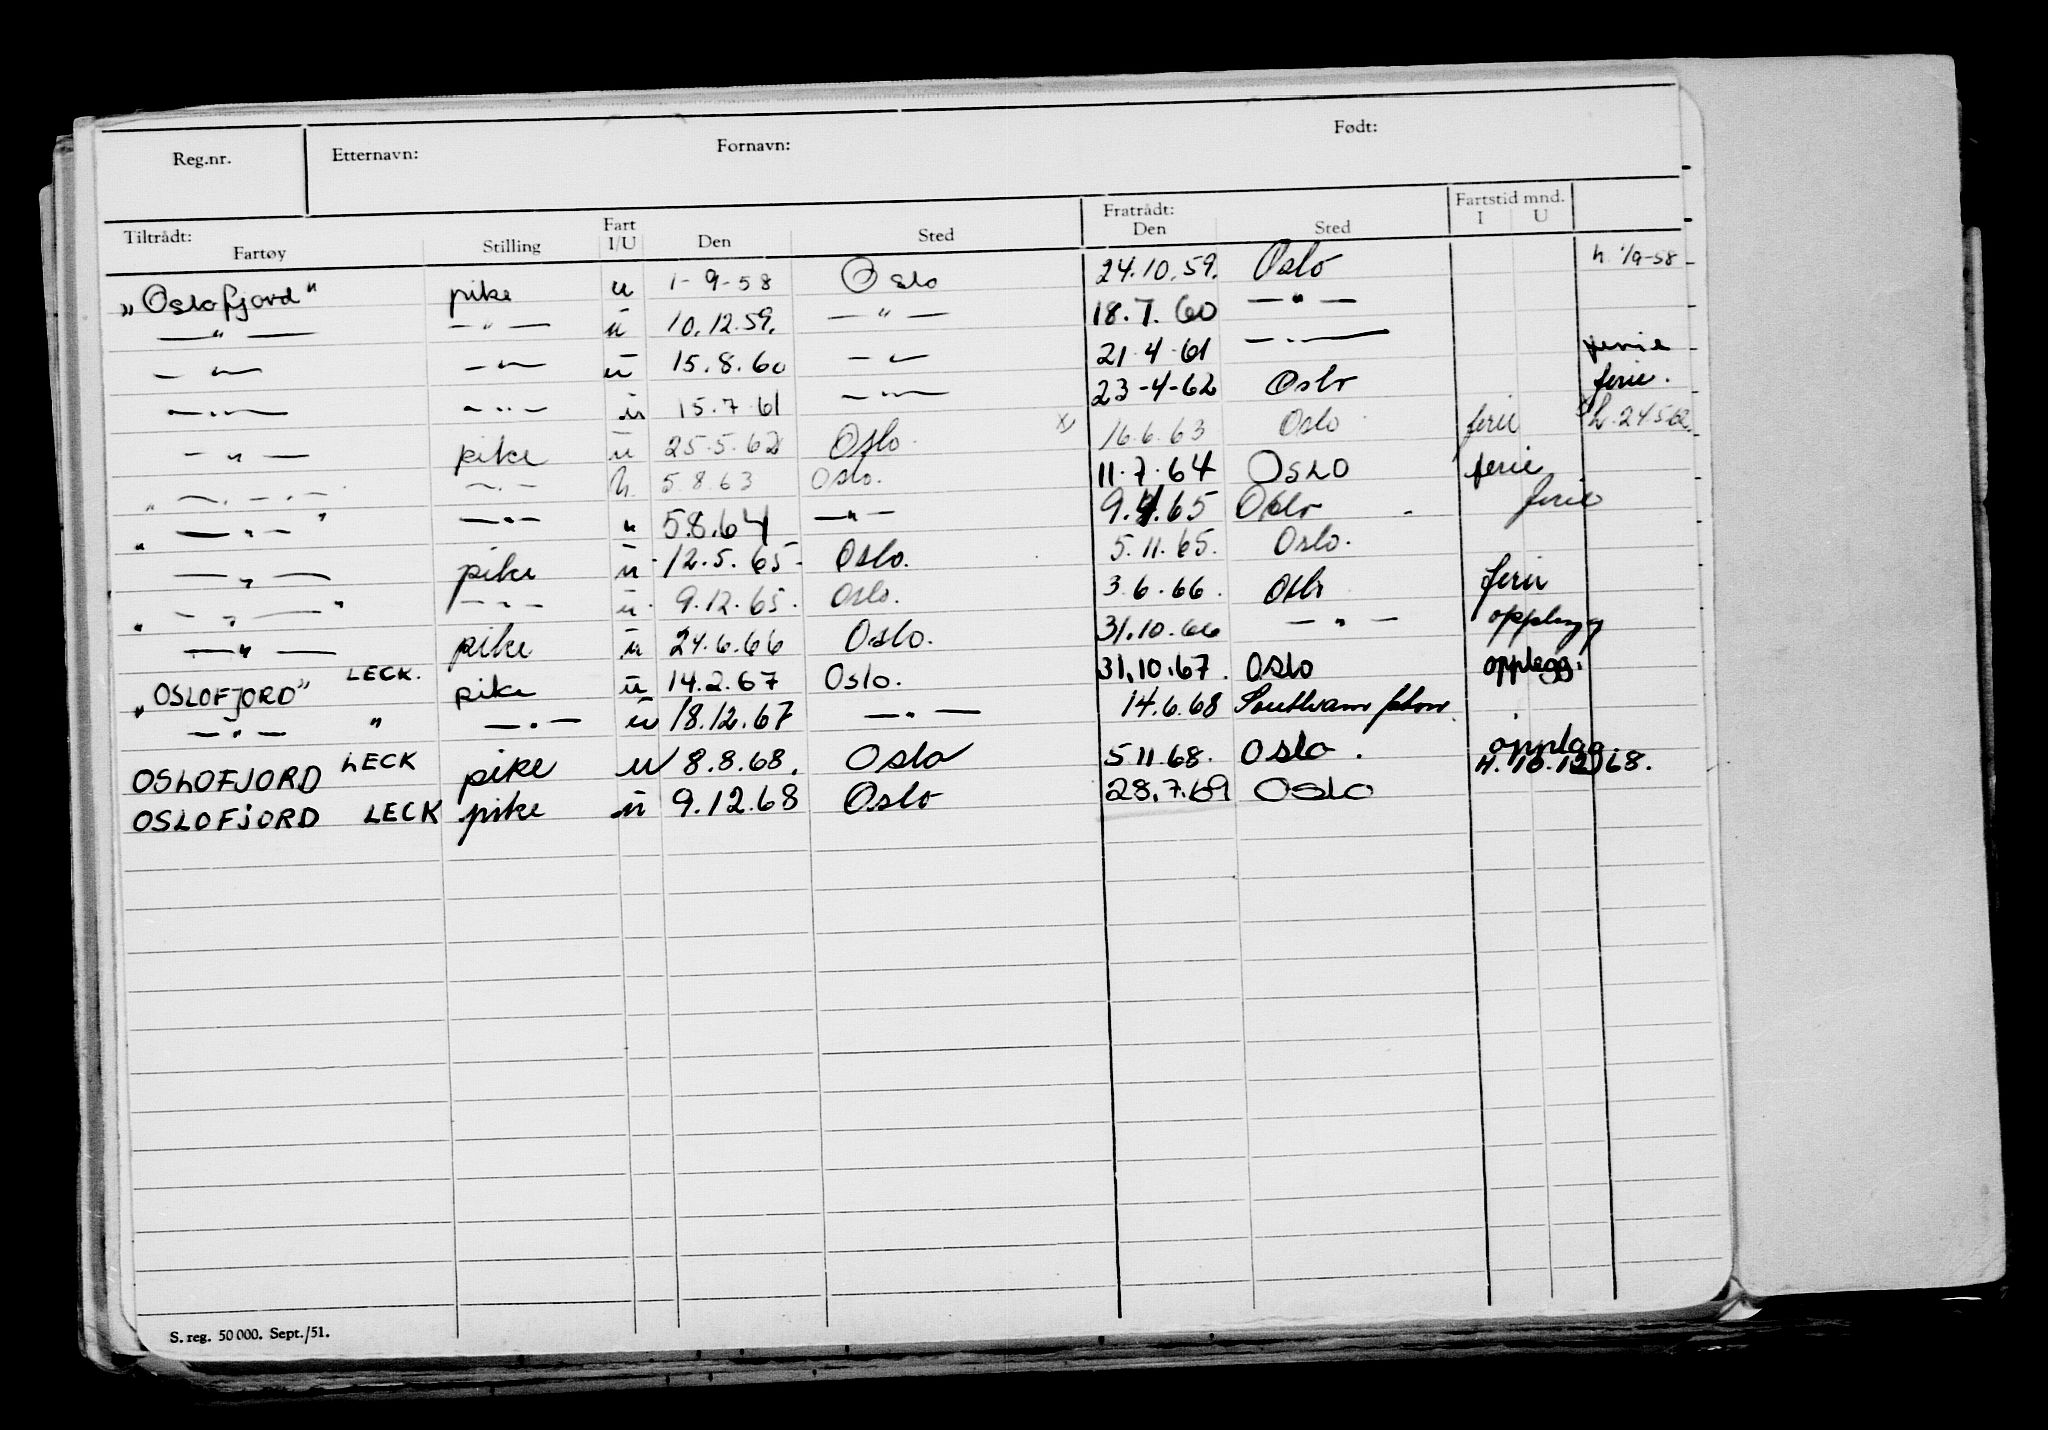 Reg.nr. Etternavn: Fornavn: Født:
Tiltrådt: Fratrådt: Fartstid mnd.
Fartøy Stilling Fart I/U Den Sted Den Sted I U
„Oslofjord" pike u 1-9-58 Oslo 24.10.59. Oslo h. 1/9-58
—"— —"— u 10.12.59. —"— 18.7.60 —"—
—"— —"— u 15.8.60 —"— 21.4.61 —"— ferie
—"— —"— u 15.7.61 —"— 23-4-62 Oslo ferie.
—"— pike u 25.5.62 Oslo. x) 16.6.63 Oslo ferie x) h. 24.5.62.
„—"— —"— h. 5.8.63 Oslo. 11.7.64 OSLO ferie
„—"—" —"— u 5.8.64 —"— 9.4.65 Oslo ferie
—"— pike u 12.5.65 Oslo. 5.11.65. Oslo.
„—"—" —"— u 9.12.65. Oslo. 3.6.66. Oslo ferie
—"— pike u 24.6.66 Oslo. 31.10.66 —"— opplegg
„OSLOFJORD" LECK. pike u 14.2.67 Oslo. 31.10.67. Oslo opplegg.
—"— " —"— u 18.12.67 —"— 14.6.68 Southampton.
OSLOFJORD LECK pike u 8.8.68. Oslo 5 11 68. Oslo. opplag
OSLOFJORD LECK pike u 9.12.68 Oslo 28.7.69 OSLO H. 10.12)68.
S. reg. 50 000. Sept./51.